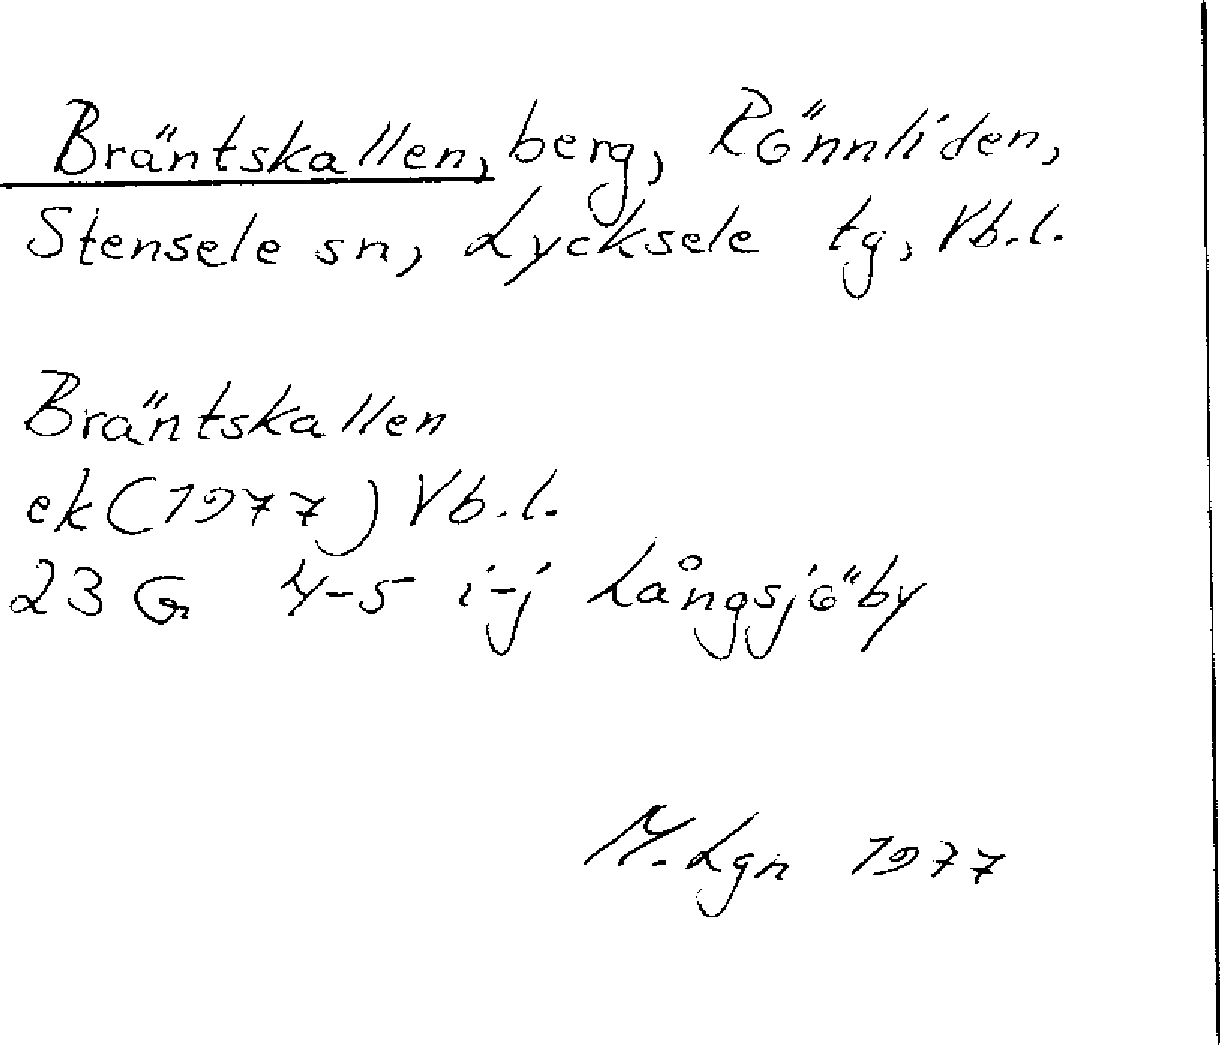 Bräntskallen, berg, Rönnliden,
Stensele sn, Lycksele tg, Vb.l.
Bräntskallen
ek (1977) Vb.l.
23 G 4-5 i-j Långsjöby
M. Lgn 1977